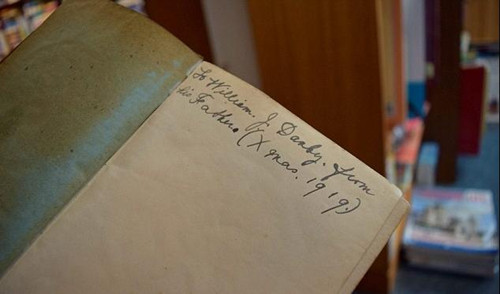 To William. J. Danby. from
his Father (Xmas. 1919.)